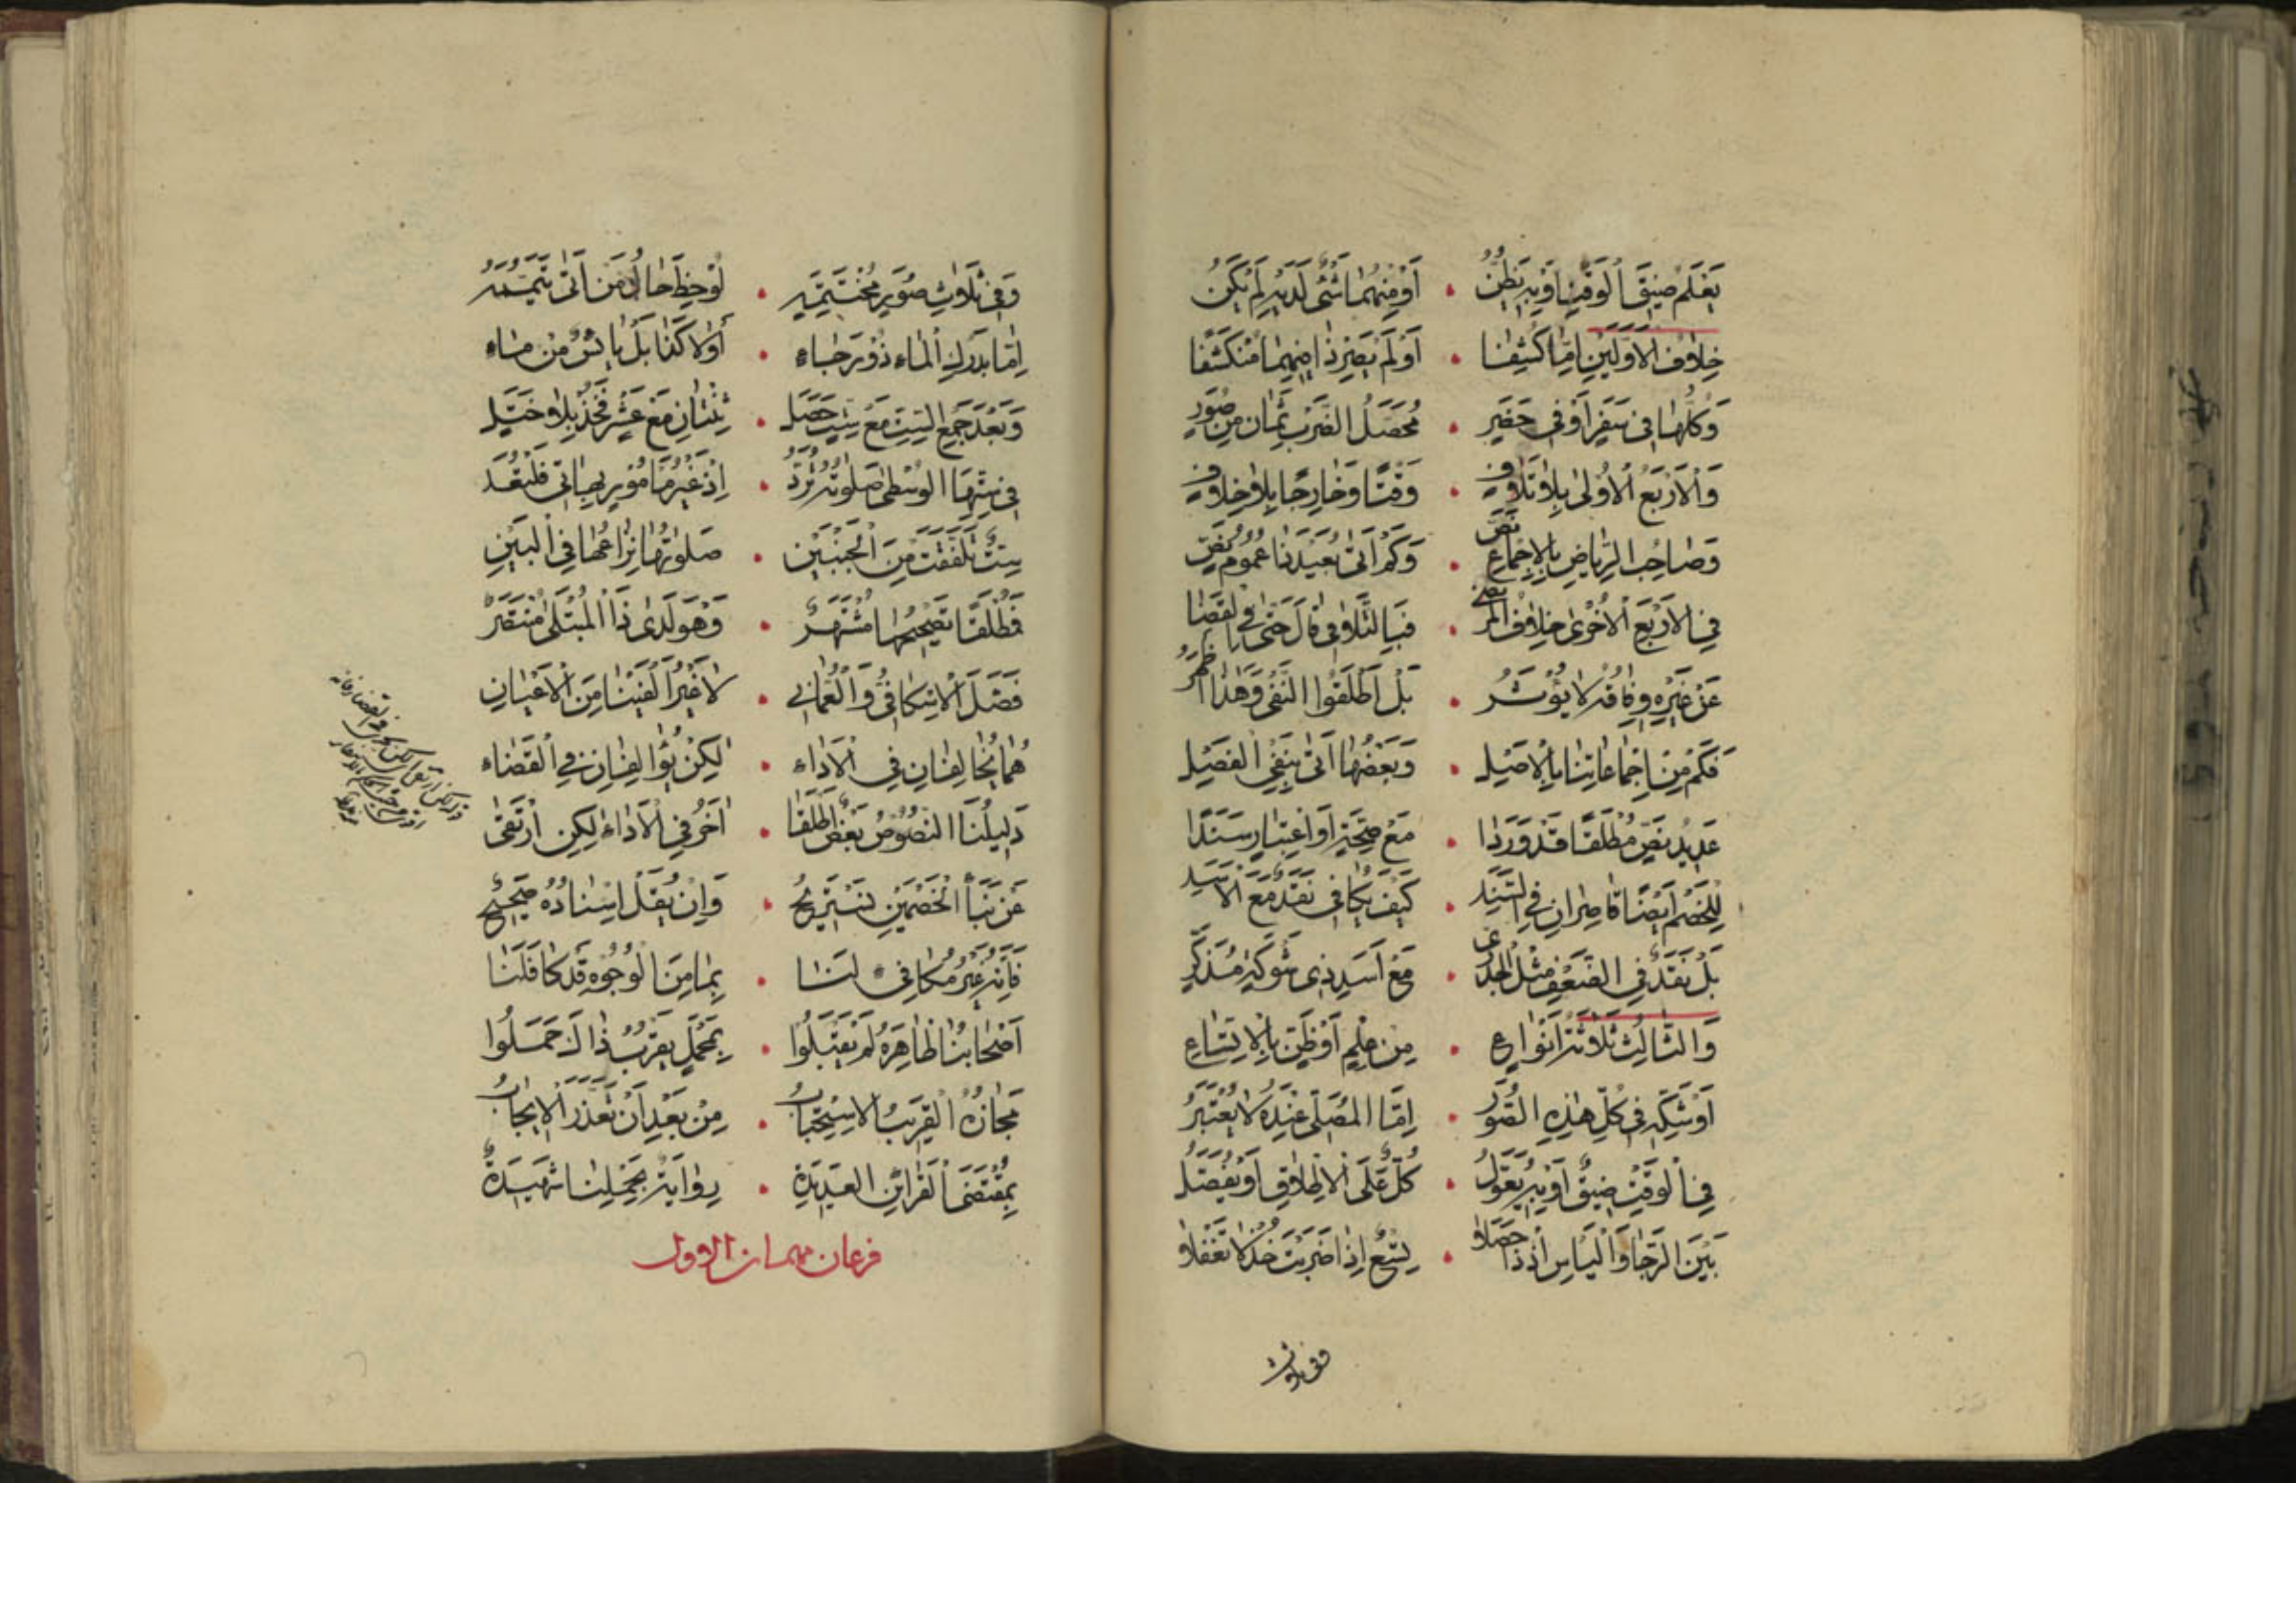 يَعْلَمُ ضِيقَ الْوَقْتِ اَوْ بِهِ يَظُنُّ • اَوْ مِنْهُمَا شَىْءٌ لَدَيْهِ لَمْ يَكُنْ
خِلَافَ الْاَوَّلَيْنِ اِمَّا كُشِفَا • اَوْ لَمْ يَصِرْ ذَا مِنْهُمَا مُنْكَشِفَا
وَكُلُّهَا فِى سَفَرٍ اَوْ فِى حَضَرٍ • مُحَصَّلُ الضَّرْبِ ثَمَانٍ مِنْ صُوَرٍ
وَالْاَرْبَعُ الْاُولىٰ بِلَا تَلَافِ • وَقْتًا وَخَارِجًا بِلَا خِلَافِ
وَصَاحِبُ الرِّيَاضِ بِالْاِجْمَاعِ نَصَّ • وَكَمْ اَتىٰ بُعَيْدَنَا عُمُومُ نَصّ
فِى الْاَرْبَعِ الْاُخْرىٰ خِلَافُ الْمُرْتَضىٰ • فَبِالتَّلَافِى قَالَ حَتّىٰ فِى الْقَضَا
عَنْ غَيْرِهِ وِفَاقُهُ لَا يُؤْثَرُ • بَلْ اَطْلَقُوا النَّفْىَ وَهٰذَا اَظْهَرُ
فَكَمْ مِنْ اِجْمَاعَاتِنَا بِالْاَصِيلِ • وَبَعْضُهَا اَتىٰ بِنَفْىِ الْفَصِيلِ
عَدِيدُ نَصٍّ مُطْلَقًا قَدْ وَرَدَا • مَعَ صِحَّةٍ اَوِ اعْتِبَارٍ سَنَدَا
لِلْخَصْمِ اَيْضًا قَاصِرَانِ فِى السَّنَدِ • كَيْفَ يُكَافِى نَقَدٌ مَعَ الْاَسَدِ
بَلْ نَقَدٌ فِى الضَّعْفِ مِثْلُ الْجَدْىِ • مَعْ اَسَدٍ ذِى شَوْكَةٍ مُذَكَّرِ
وَالثَّالِثُ ثَلَاثَةُ اَنْوَاعِ • مِنْ عِلْمٍ اَوْ ظَنٍّ بِالْاِتِّسَاعِ
اَوْ شَكِّهِ فِى كُلِّ هٰذِهِ الصُّوَرِ • اِمَّا الْمُصَلّىٰ عِنْدَهُ لَا يُعْتَبَرُ
فِى الْوَقْتِ ضِيقٌ اَوْ بِهِ يَقُولُ • كُلٌّ عَلَى الْاِطْلَاقِ اَوْ يُفَصِّلُ
بَيْنَ الرَّجَا وَالْيَاْسِ اِذْ ذَا حَصَلَا • تِسْعٌ اِذَا ضَرَبْتَ خُذْ لَا تَغْفَلَا
وفى ثلاث
وَفِى ثَلَاثِ صُوَرٍ مُخْتَتَمَةٍ • لُوحِظَ حَالُ مَنْ اَتىٰ تَيَمُّمَهُ
اِمَّا بِدَرْكِ الْمَاءِ ذُو رَجَاءِ • اَوْ لَا كَذَا بَلْ يَائِسٌ مِنْ مَاءِ
وَبَعْدَ جَمْعِ السِّتِّ مَعْ سِتٍّ حَصَلَ • ثِنْتَانِ مَعْ عَشْرٍ فَخُذْ بِلَا خَلَلِ
فِى سِتِّهَا الْوُسْطىٰ صَلَوتُهُ تُرَدُّ • اِذْ غَيْرُ مَأْمُورٍ بِهَا اَتىٰ فَلْيُعَدْ
سِتٌّ تَلَفَّقَتْ مِنَ الْجَنْبَيْنِ • صَلَوتُهَا نِزَاعُهَا فِى الْبَيْنِ
فَمُطْلَقًا تَصْحِيحُهَا مُشْتَهَرٌ • وَهْوَ لَدىٰ ذَا الْمُبْتَلىٰ مُنْتَصَرٌ
فَصَّلَ الْاِسْكَافِىُّ وَالْعُمَانِى • لَا غَيْرَ اَلْفَيْنَا مِنَ الْاَعْيَانِ
هُمَا يُخَالِفَانِ فِى الْاَدَاءِ • لٰكِنْ يُؤَالِفَانِ فِى الْقَضَاءِ
دَلِيلُنَا النُّصُوصُ بَعْضٌ اَطْلَقَا • اٰخَرُ فِى الْاَدَاءِ لٰكِنِ ارْتَقىٰ
عَنْ نَبَأِ الْخَصْمَيْنِ نَسْتَرِيحُ • وَاِنْ يُقَلْ اِسْنَادُهُ صَحِيحٌ
فَاِنَّهُ غَيْرُ مُكَافِىءٍ لَنَا • بِمَا مِنَ الْوُجُوهِ قَدْ كَانَ لَنَا
اَصْحَابُنَا ظَاهِرَهُ لَمْ يَقْبَلُوا • بِمَحْمَلٍ يَقْرُبُ ذَاكَ حَمَلُوا
مَجَازُهُ الْقَرِيبُ الْاِسْتِحْبَابُ • مِنْ بَعْدِ اَنْ تَعَذَّرَ الْاِيجَابُ
بِمُقْتَضَى الْقَرَائِنِ الْعَدِيدَةِ • رِوَايَةٌ بِحَمْلِنَا شَهِيدَةٌ
فرعان مهمان الاول